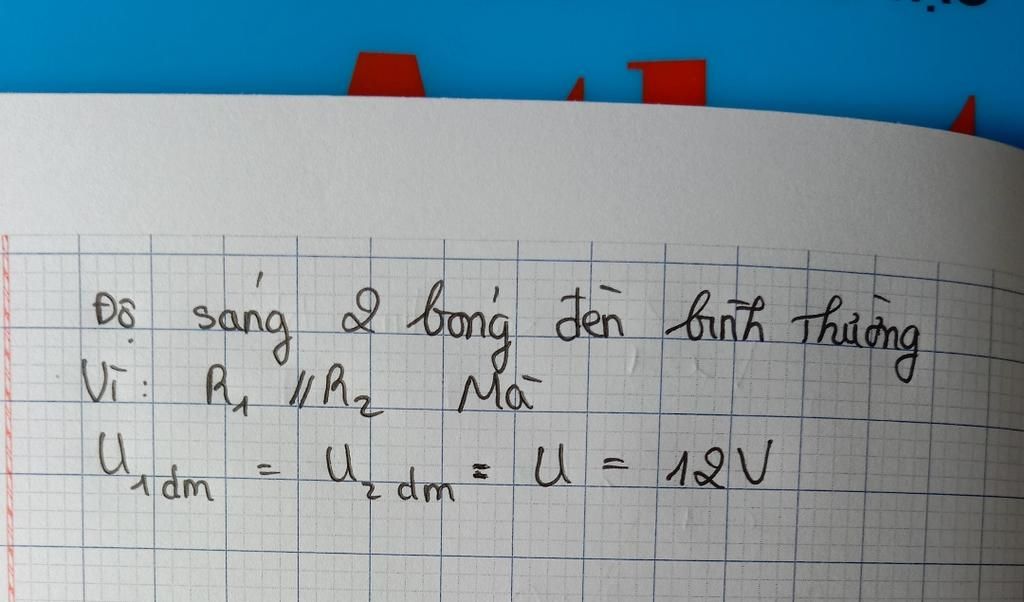 Độ sáng 2 bóng đèn bình thường
Vì: R₁ // R₂ Mà
U₁ đm = U₂ đm = U = 12V